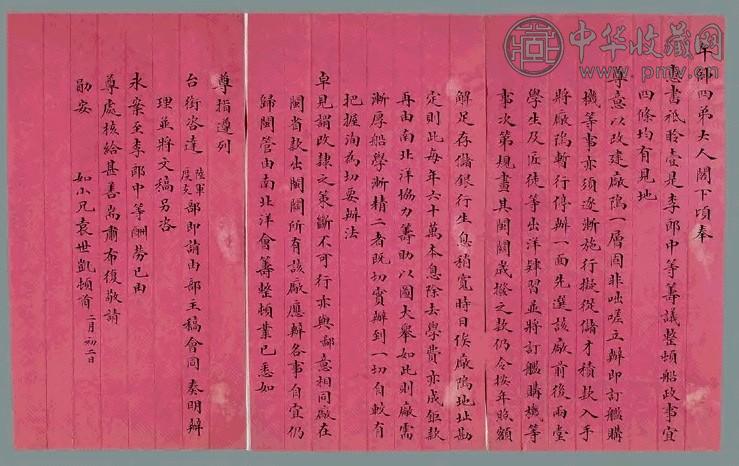 午帥四弟大人閣下頃奉
惠書祗聆壹是李郎中等籌議整頓船政事宜
四條均有見地
尊意以改建廠隖一層固非咄嗟立辦即訂艦購
機等事亦須逐漸施行擬從儲才積款入手
將廠隖暫行停辦一面先選該廠前後兩堂
學生及匠徒等出洋肄習並將訂艦購機等
事次第規畫其閩關歲撥之款仍令按年照額
解足存儲銀行生息稍寬時日俟廠隖地址勘
定則此每年六十萬本息除去學費亦成鉅款
再由南北洋協力籌助以圖大舉如此則廠需
漸厚船學漸精一者既切實辦到一切自較有
把握洵為切要辦法
卓見謂改隸之策斷不可行亦與鄙意相同廠在
閩省款出閩關所有該廠應辦各事自宜仍
歸閩管由南北洋會籌整頓業已悉如
尊指遵列
台銜咨達陸軍度支部即請由部主稿會同奏明辦
理並將文稿另咨
冰案至李郎中等酬勞已由
尊處核給甚善耑肅布復敬請
勛安 如小兄袁世凱頓首 二月初二日
中华收藏网
www.pmv.cn